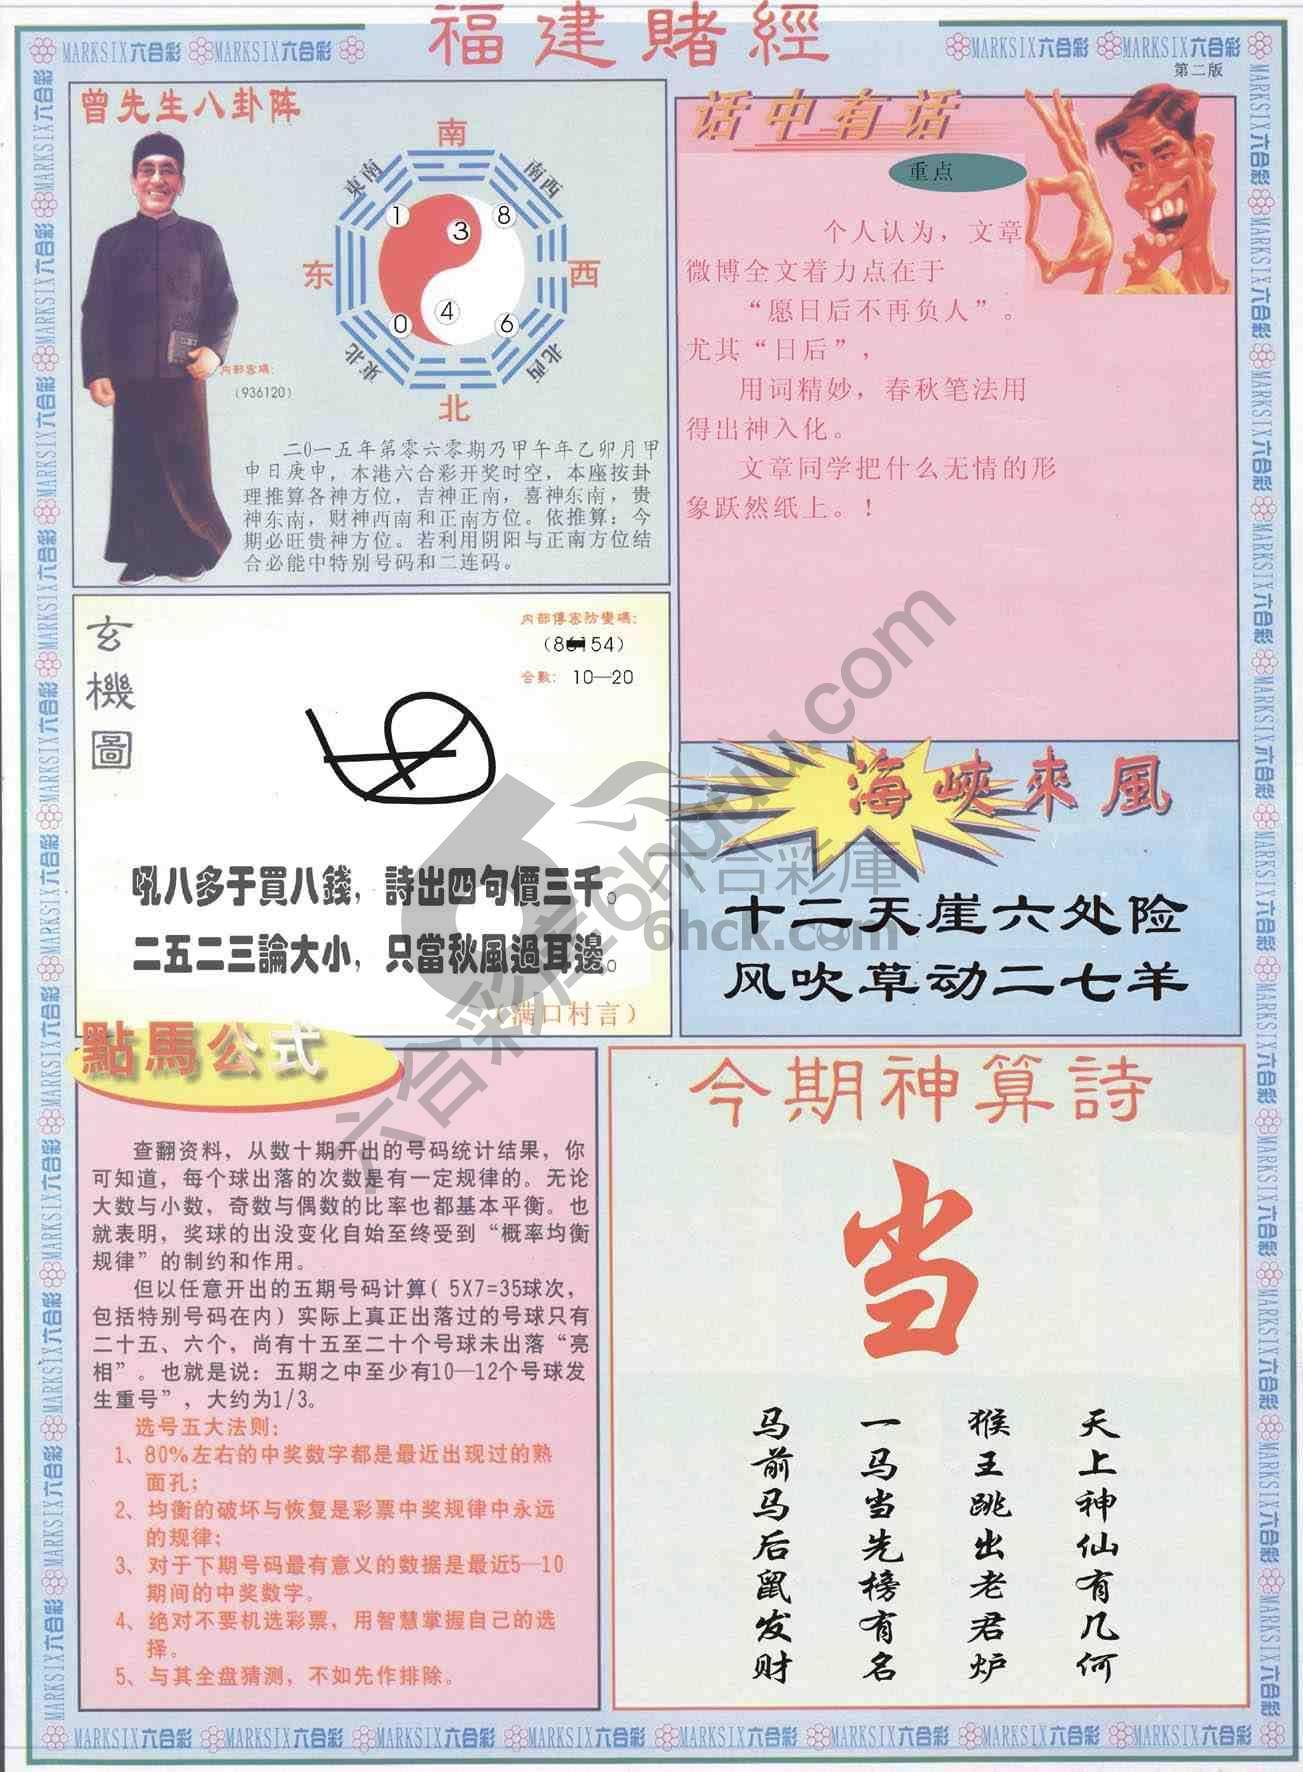 福建賭經
MARKSIX六合彩 MARKSIX六合彩
MARKSIX六合彩 MARKSIX六合彩
第二版
曾先生八卦阵
南
東南
南西
1
3
8
东
西
0
4
6
東北
北西
北
内部密碼:
(936120)
二0一五年第零六零期乃甲午年乙卯月甲
申日庚申，本港六合彩开奖时空，本座按卦
理推算各神方位，吉神正南，喜神东南，贵
神东南，财神西南和正南方位。依推算：今
期必旺贵神方位。若利用阴阳与正南方位结
合必能中特别号码和二连码。
话中有话
重点
个人认为，文章
微博全文着力点在于
“愿日后不再负人”。
尤其“日后”，
用词精妙，春秋笔法用
得出神入化。
文章同学把什么无情的形
象跃然纸上。！
玄機圖
内部傳密防變碼:
(86154)
合數: 10—20
吼八多于買八錢，詩出四句價三千。
二五二三論大小，只當秋風過耳邊。
（满口村言）
海峽來風
十二天崖六处险
风吹草动二七羊
六合彩庫
6hck.com
六合彩库6hhuuu.com
點馬公式
查翻资料，从数十期开出的号码统计结果，你
可知道，每个球出落的次数是有一定规律的。无论
大数与小数，奇数与偶数的比率也都基本平衡。也
就表明，奖球的出没变化自始至终受到“概率均衡
规律”的制约和作用。
但以任意开出的五期号码计算( 5X7=35球次，
包括特别号码在内）实际上真正出落过的号球只有
二十五、六个，尚有十五至二十个号球未出落“亮
相”。也就是说：五期之中至少有10—12个号球发
生重号”，大约为1/3。
选号五大法则:
1、80%左右的中奖数字都是最近出现过的熟
面孔;
2、均衡的破坏与恢复是彩票中奖规律中永远
的规律;
3、对于下期号码最有意义的数据是最近5—10
期间的中奖数字。
4、绝对不要机选彩票，用智慧掌握自己的选
择。
5、与其全盘猜测，不如先作排除。
今期神算詩
当
天上神仙有几何
猴王跳出老君炉
一马当先榜有名
马前马后鼠发财
MARKSIX六合彩 MARKSIX六合彩 MARKSIX六合彩 MARKSIX六合彩 MARKSIX六合彩 MARKSIX六合彩 MARKSIX六合彩 MARKSIX六合彩